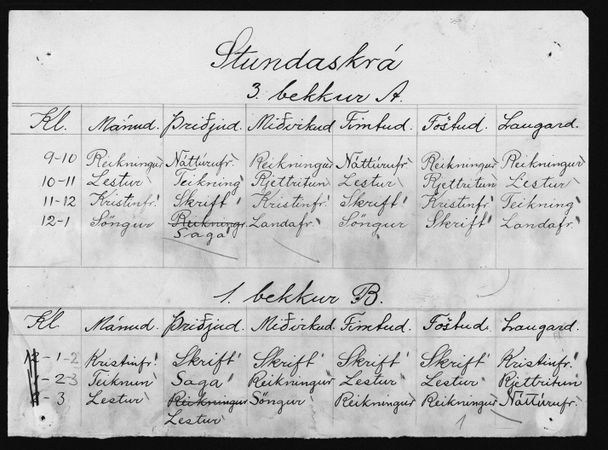 Stundaskrá
3. bekkur A.
Kl. Mánud. Þriðjud. Miðvikud. Fimtud. Föstud. Laugard.
9-10 Reikningur Náttúrufr. Reikningur Náttúrufr. Reikningur Reikningur
10-11 Lestur Teikning Rjettritun Lestur Rjettritun Lestur
11-12 Kristinfr. Skrift Kristinfr. Skrift Kristinfr. Teikning
12-1 Söngur Reikningr Landafr. Söngur Skrift Landafr.
Saga
1. bekkur B.
Kl. Mánud. Þriðjud. Miðvikud. Fimtud. Föstud. Laugard.
1-2 Kristinfr. Skrift Skrift Skrift Skrift Kristinfr.
2-3 Teiknun Saga Reikningur Lestur Lestur Rjettritun
3 Lestur Reikningur Söngur Reikningur Reikningur Náttúrufr.
Lestur